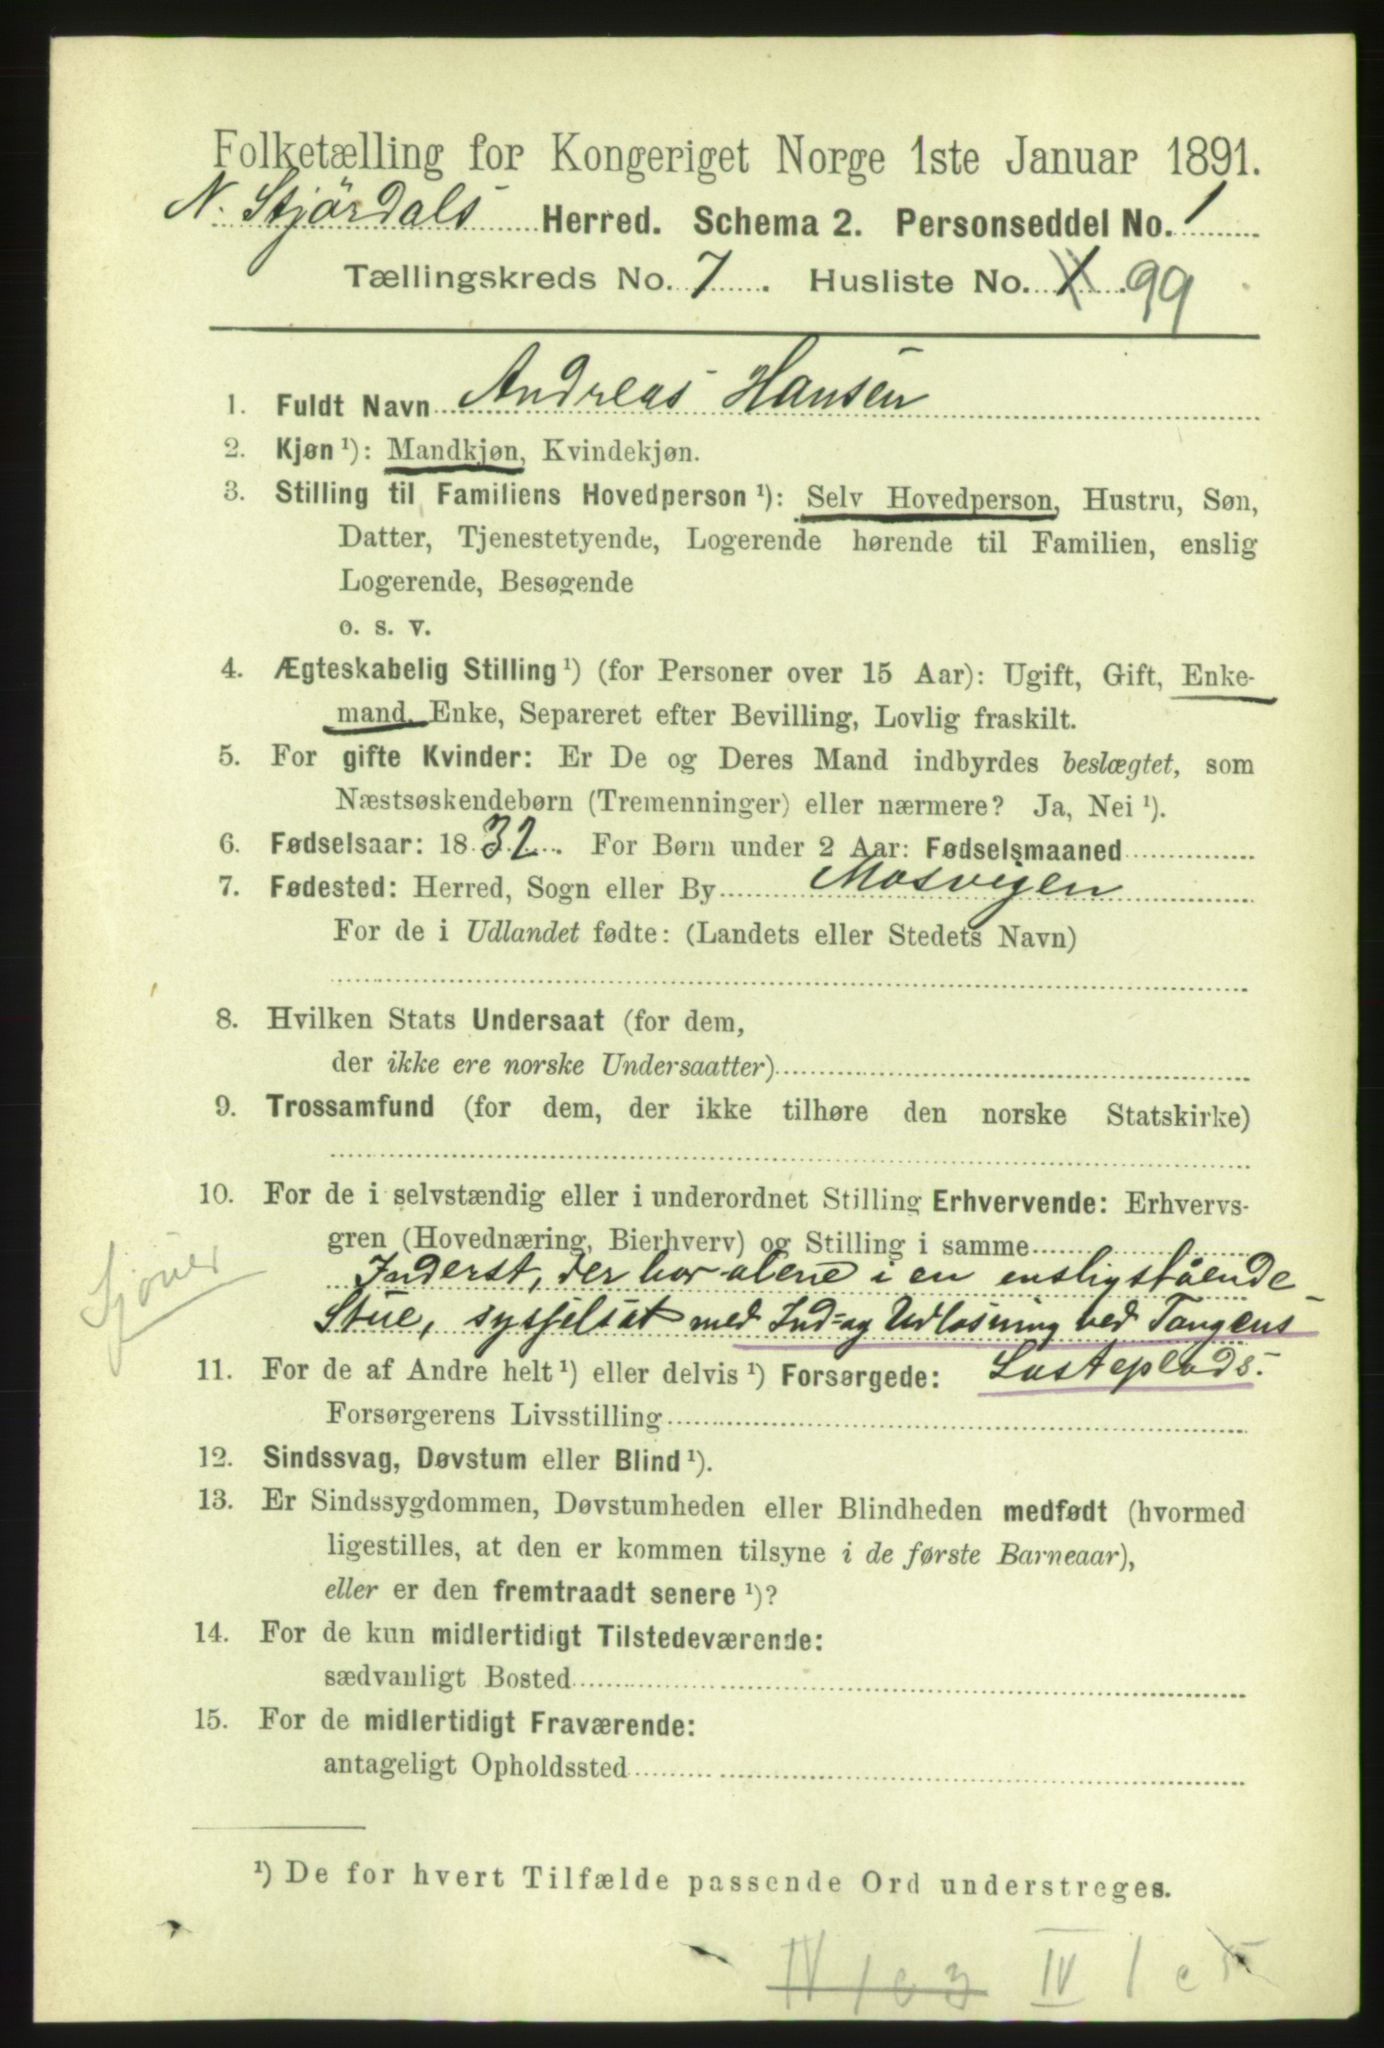 Folketælling for Kongeriget Norge 1ste Januar 1891.
N. Stjørdals Herred. Schema 2. Personseddel No. 1
Tællingskreds No. 7. Husliste No. 1 99
1. Fuldt Navn Andreas Hansen
2. Kjøn ¹): Mandkjøn, Kvindekjøn.
3. Stilling til Familiens Hovedperson ¹): Selv Hovedperson, Hustru, Søn,
Datter, Tjenestetyende, Logerende hørende til Familien, enslig
Logerende, Besøgende
o. s. v.
4. Ægteskabelig Stilling ¹) (for Personer over 15 Aar): Ugift, Gift, Enke-
mand, Enke, Separeret efter Bevilling, Lovlig fraskilt.
5. For gifte Kvinder: Er De og Deres Mand indbyrdes beslægtet, som
Næstsøskendebørn (Tremenninger) eller nærmere? Ja, Nei ¹).
6. Fødselsaar: 1832. For Børn under 2 Aar: Fødselsmaaned
7. Fødested: Herred, Sogn eller By Mosvigen
For de i Udlandet fødte: (Landets eller Stedets Navn)
8. Hvilken Stats Undersaat (for dem,
der ikke ere norske Undersaatter)
9. Trossamfund (for dem, der ikke tilhøre den norske Statskirke)
10. For de i selvstændig eller i underordnet Stilling Erhvervende: Erhvervs-
gren (Hovednæring, Bierhverv) og Stilling i samme
Inderst, der bor alene i en ensligstående
Stue, sysselsat med Ind- og Udlosning ved Tangens
11. For de af Andre helt ¹) eller delvis ¹) Forsørgede: Lasteplads.
Forsørgerens Livsstilling
12. Sindssvag, Døvstum eller Blind ¹).
13. Er Sindssygdommen, Døvstumheden eller Blindheden medfødt (hvormed
ligestilles, at den er kommen tilsyne i de første Barneaar),
eller er den fremtraadt senere ¹)?
14. For de kun midlertidigt Tilstedeværende:
sædvanligt Bosted
15. For de midlertidigt Fraværende:
antageligt Opholdssted
¹) De for hvert Tilfælde passende Ord understreges.
IV 1 c 3 IV 1 c